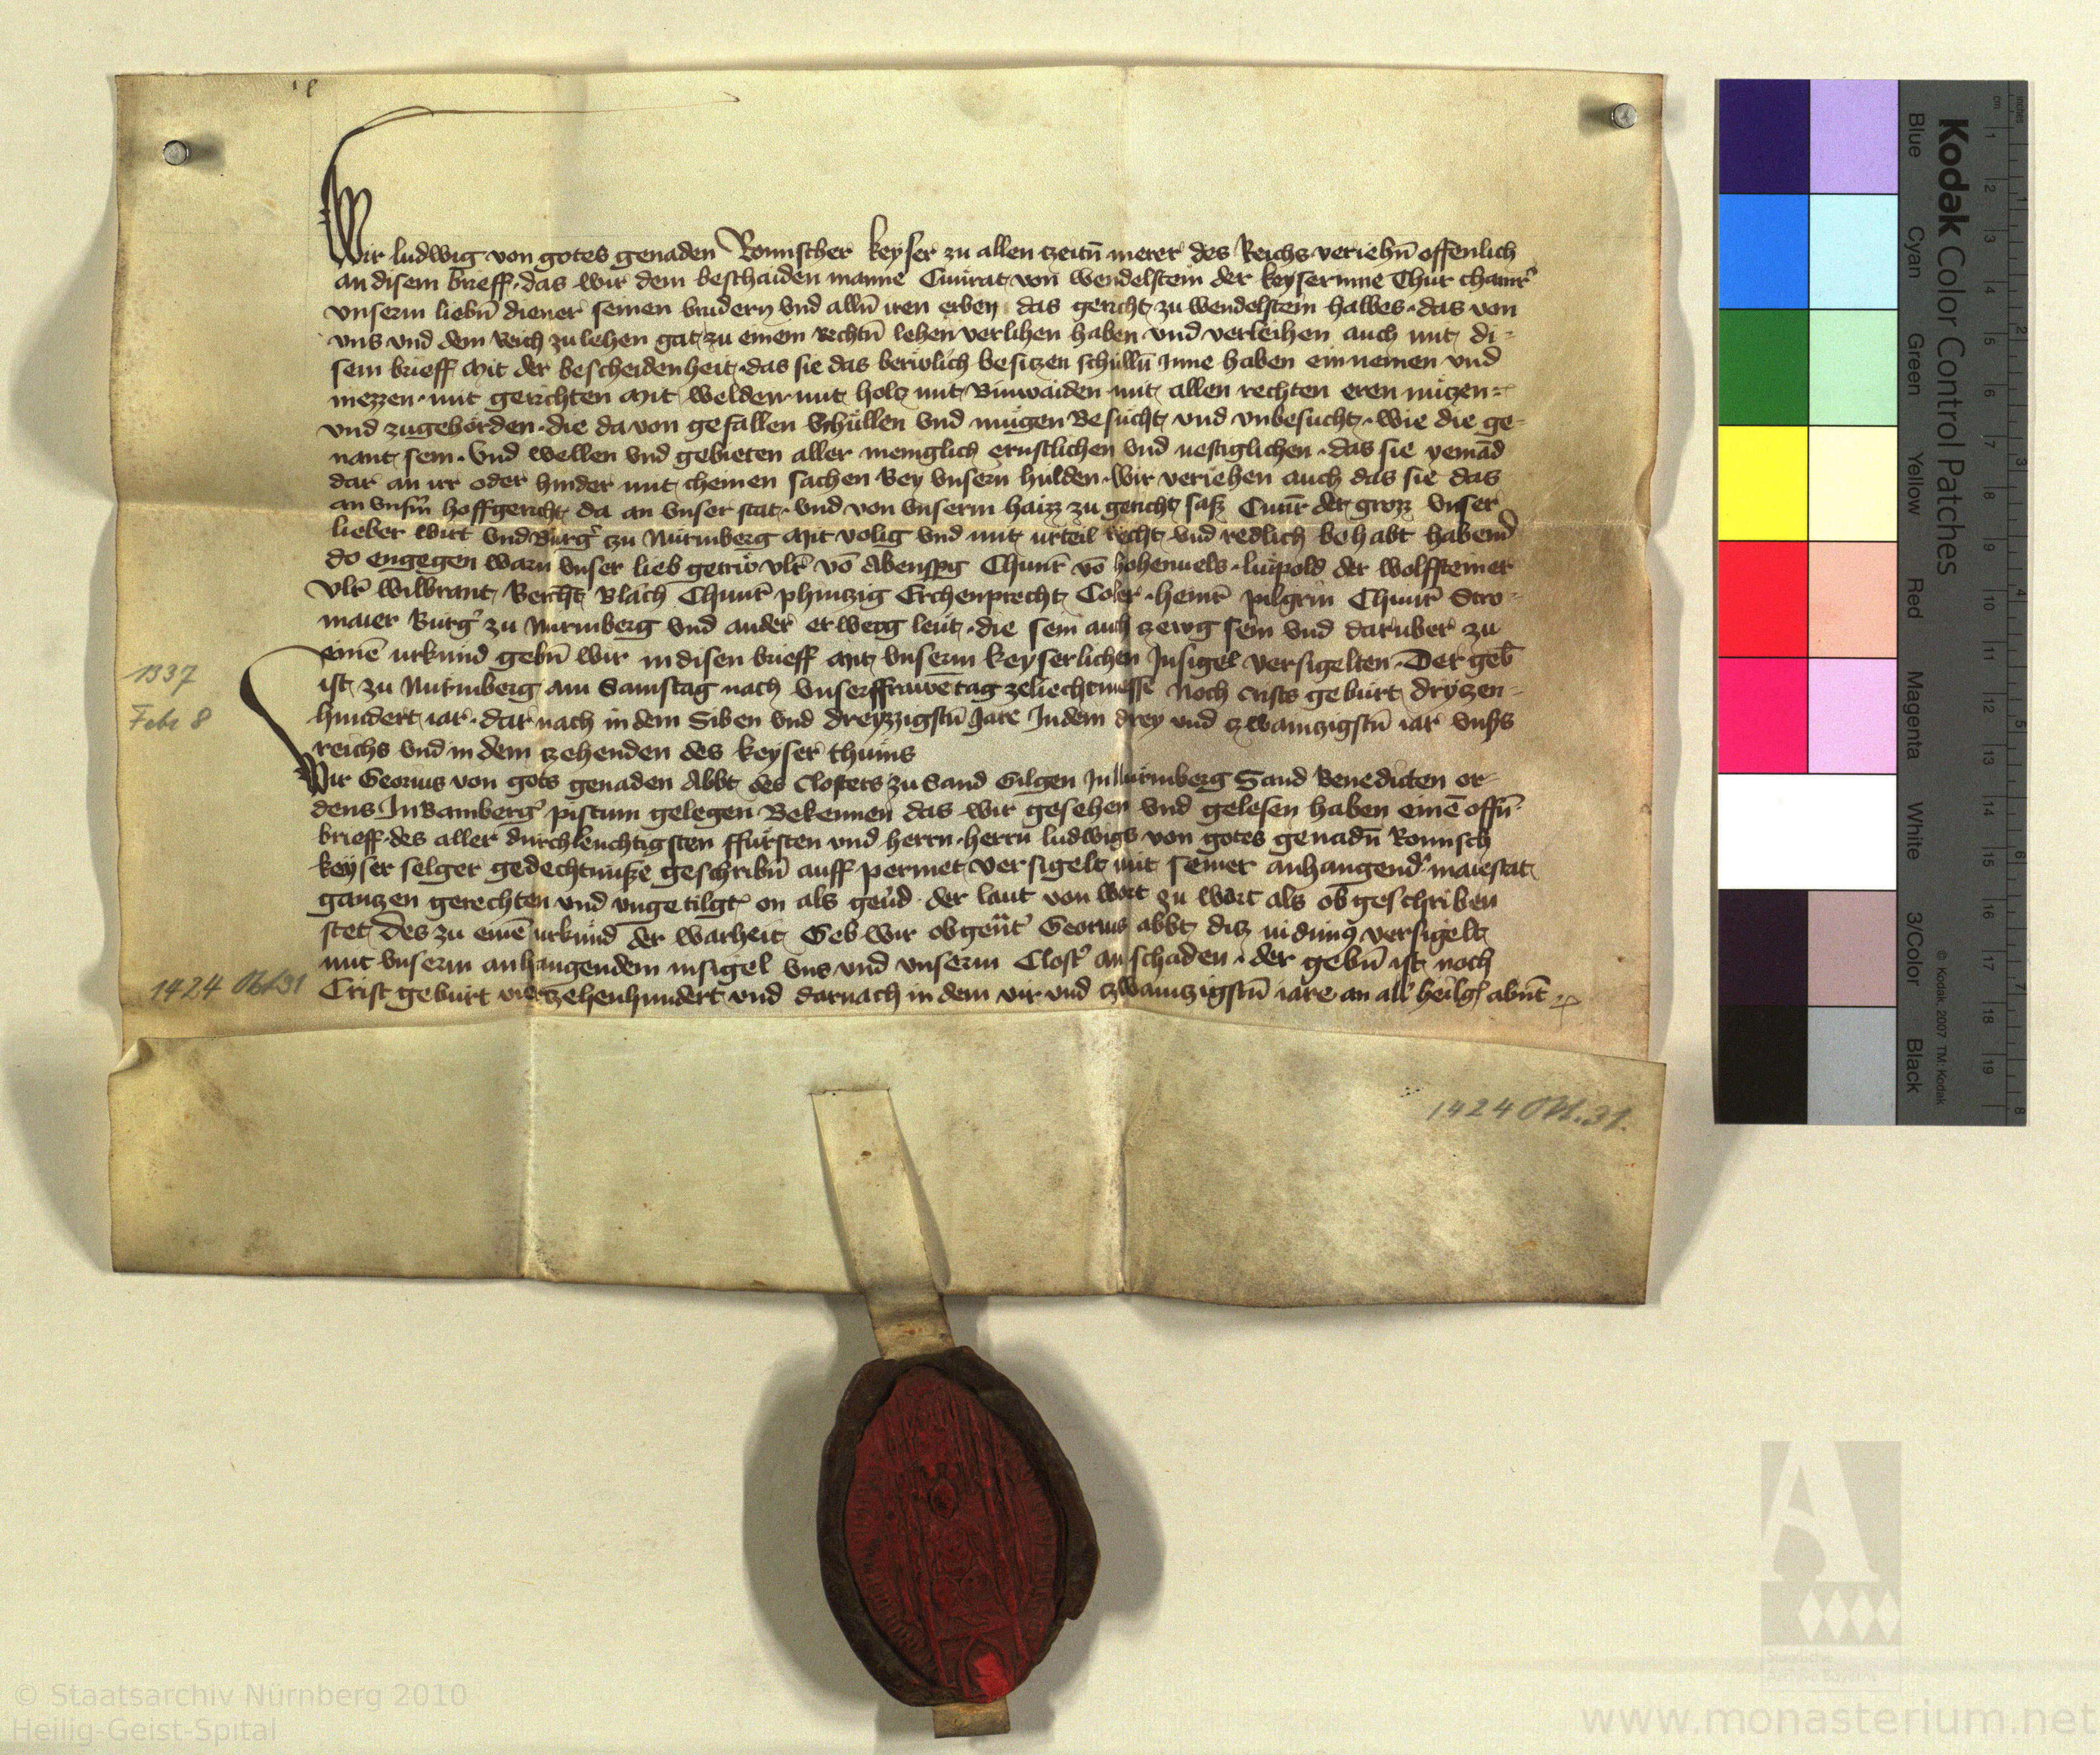 Wir ludwig von gotes genaden Romischer keyser zu allen tzeitn̄ merer des Reichs veriehn̄ offenlich
an disem brieff · das wir dem beschaiden manne Cunrat von wendelstein der keyserinne Thur
vnserm liebn̄ diener seinen brudern vnd alln̄ iren erben das gericht zu wendelstein halbes · das von
vns vnd dem Reich zu lehen gat zu einem rechtn̄ lehen verlihen haben vnd verleihen auch mit di=
sem brieff mit der bescheidenheit · das sie das berwlich besitzen schulln̄ Inne haben ein nemen vnd
niezzen · mit gerichten mit welden mit holtz mit allen rechten eren nützen =
vnd zugehörden · die da von gefallen schüllen vnd mügen Besucht vnd vnbesucht · wie die ge=
nant sein · Vnd wellen vnd gebieten aller meniglich ernstlichen vnd uestiglichen · das sie yemād
dar an irr oder hinder mit cheinen sachen Bey vnsern hulden · Wir veriehen auch das sie das
an vnsm̄ hoffgericht da an vnser stat · vnd von vnserm haizz zu gericht saß Cunr̄ der grozz vnser
lieber wirt vnd Burg̉ zu Nurmberg mit volig vnd mit urteil recht vnd redlich behabt habend
do engegen warn vnser lieb getriẘ vlr̄ vō Abenspg Chunr̄ vō hohenuels · luipold der wolffsteiner
Vlr̄ wilbrant Berch̄t Vlach Chunr̄ phintzig Erchenprecht Coler · heinr̄ pilgrin Chunr̄ Stro=
maier Burg̉ zu Nurmberg vnd ander erwerg leut · die sein auch tzewg sein vnd daruber zu
einē urkund gebn̄ wir in disen brieff mit vnserm keyserlichen Insigel versigelten · Der geb̄
ist zu Nurmberg am Samstag nach vnserffrawētag zeliechtmesse noch crists geburt drytzen=
hundert iar · dar nach in dem Siben vnd dreyzzigstn̄ Jare In dem drey vnd tzwaintzigstn̄ iar vnsͥs
reichs vnd in dem tzehenden des keyser thums
1337
Febr 8
Wir Georius von gots genaden Abbt des Closters zu Sand Gilgen In Nurmberg Sand Benedicten or=
dens In Bamberg̉ pistum gelegen Bekennen das wir gesehen vnd gelesen haben einē offn̄
brieff · des aller durchleuchtigsten ffürsten vnd herrn · herrn ludwigs von gotes genadn̄ Romisch
keyser selger gedechtnuße geschribn̄ auff permet versigelt mit seiner anhangend̉ maiestat
gantzen gerechten vnd vngetilgt̉ on als geu̇d · der laut von wort zu wort als ob geschriben
stet Des zu einē urkund der warheit Geb wir obgen̄t̉ Georius abbt ditz uidimꝰ versigelt
mit vnserm anhangendem insigel vns vnd vnserm Clost̉ an schaden · der gebn̄ ist noch
Crist geburt viertzehenhundert vnd darnach in dem vir vnd tzwaintzigstn̄ iare an all̉ heilgꝭ abnt̄
1424 Okt 31
1424 Okt. 31.
Kodak Color Control Patches
Blue Cyan Green Yellow Red Magenta White 3/Color Black
© Kodak, 2007 TM: Kodak
cm 1 2 3 4 5 6 7 8 9 10 11 12 13 14 15 16 17 18 19
inches 1 2 3 4 5 6 7 8
© Staatsarchiv Nürnberg 2010
Heilig-Geist-Spital
www.monasterium.net